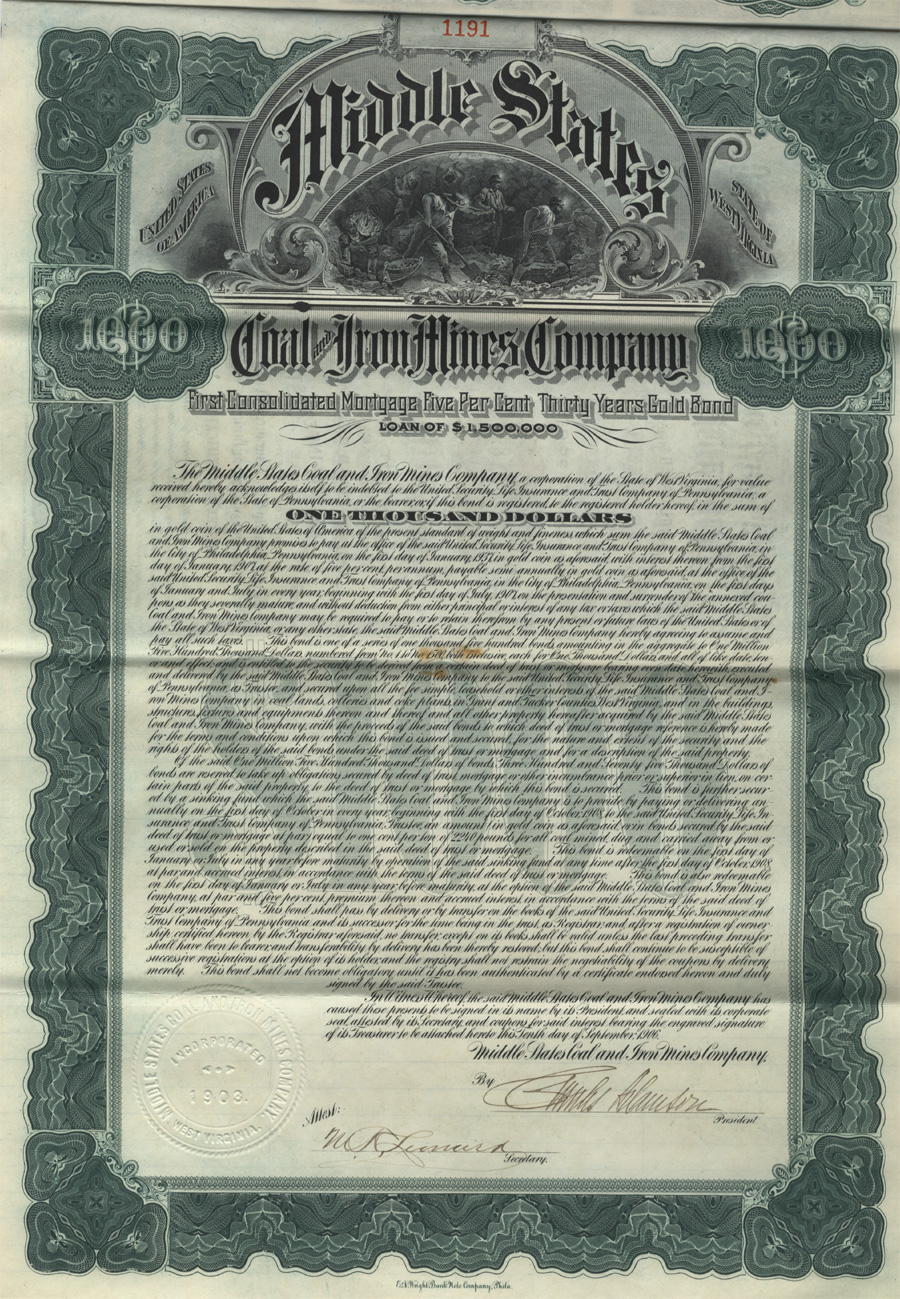 1191
Middle States
UNITED STATES
OF AMERICA
STATE OF
WEST VIRGINIA
1000
1000
Coal and Iron Mines Company
First Consolidated Mortgage Five Per Cent Thirty Years Gold Bond
LOAN OF $1,500,000
The Middle States Coal and Iron Mines Company, a corporation of the State of West Virginia, for value
received hereby acknowledges itself to be indebted to the United Security Life Insurance and Trust Company of Pennsylvania, a
corporation of the State of Pennsylvania, or the bearer, or if this bond is registered, to the registered holder hereof, in the sum of
ONE THOUSAND DOLLARS
in gold coin of the United States of America of the present standard of weight and fineness, which sum the said Middle States Coal
and Iron Mines Company promises to pay at the office of the said United Security Life Insurance and Trust Company of Pennsylvania, in
the City of Philadelphia, Pennsylvania, on the first day of January, 1937, in gold coin as aforesaid, with interest thereon from the first
day of January, 1907, at the rate of five per cent. per annum, payable semi-annually in gold coin as aforesaid, at the office of the
said United Security Life Insurance and Trust Company of Pennsylvania, in the City of Philadelphia, Pennsylvania, on the first days
of January and July in every year, beginning with the first day of July, 1907, on the presentation and surrender of the annexed cou-
pons as they severally mature, and without deduction from either principal or interest of any tax or taxes which the said Middle States
Coal and Iron Mines Company may be required to pay or to retain therefrom by any present or future laws of the United States or of
the State of West Virginia, or any other state, the said Middle States Coal and Iron Mines Company hereby agreeing to assume and
pay all such taxes. This bond is one of a series of one thousand five hundred bonds amounting in the aggregate to One Million
Five Hundred Thousand Dollars, numbered from No. 1 to No. both inclusive, each for One Thousand Dollars and all of like date, ten-
or and effect, and is entitled to the security to be derived from a deed of trust or mortgage bearing even date herewith executed
and delivered by the said Middle States Coal and Iron Mines Company to the said United Security Life Insurance and Trust Company
of Pennsylvania, as Trustee, and secured upon all the fee simple, leasehold or other interests of the said Middle States Coal and I-
ron Mines Company in coal lands, collieries and coke plants, in Grant and Tucker Counties, West Virginia, and in the buildings,
structures, fixtures and equipments thereon and thereof and all other property hereafter acquired by the said Middle States
Coal and Iron Mines Company, with the proceeds of the said bonds to which deed of trust or mortgage reference is hereby made
for the terms and conditions upon which this bond is issued and secured, for the nature and extent of the security and the
rights of the holders of the said bonds under the said deed of trust or mortgage and for a description of the said property.
Of the said One Million Five Hundred Thousand Dollars of bonds, Three Hundred and Seventy five Thousand Dollars of
bonds are reserved to take up obligations secured by deed of trust, mortgage or other incumbrance prior or superior in lien, on cer-
tain parts of the said property, to the deed of trust or mortgage by which this bond is secured. This bond is further secur-
ed by a sinking fund which the said Middle States Coal and Iron Mines Company is to provide by paying or delivering an-
nually on the first day of October in every year, beginning with the first day of October, 1908, to the said United Security Life In-
surance and Trust Company of Pennsylvania, Trustee, an amount in gold coin as aforesaid or in bonds secured by the said
deed of trust or mortgage at par, equal to one cent per ton of 2240 pounds for all coal mined, dug and carried away from or
used or sold on the property described in the said deed of trust or mortgage. This bond is redeemable on the first day of
January or July in any year before maturity by operation of the said sinking fund at any time after the first day of October, 1908,
at par and accrued interest in accordance with the terms of the said deed of trust or mortgage. This bond is also redeemable
on the first day of January or July in any year, before maturity, at the option of the said Middle States Coal and Iron Mines
Company, at par and five per cent premium thereon and accrued interest in accordance with the terms of the said deed of
trust or mortgage. This bond shall pass by delivery or by transfer on the books of the said United Security Life Insurance and
Trust Company of Pennsylvania and its successor for the time being in the trust, as Registrar, and after a registration of owner-
ship certified hereon by the Registrar aforesaid, no transfer, except on its books shall be valid unless the last preceding transfer
shall have been to bearer, and transferability by delivery has been thereby restored, but this bond shall continue to be susceptible of
successive registrations at the option of its holder, and the registry shall not restrain the negotiability of the coupons by delivery
merely. This bond shall not become obligatory until it has been authenticated by a certificate endorsed hereon and duly
signed by the said Trustee.
In Witness Whereof, the said Middle States Coal and Iron Mines Company has
caused these presents to be signed in its name by its President, and sealed with its corporate
seal, attested by its Secretary, and coupons for said interest bearing the engraved signature
of its Treasurer to be attached hereto this Tenth day of September, 1906.
Middle States Coal and Iron Mines Company.
By
President
Attest:
Secretary.
MIDDLE STATES COAL AND IRON MINES COMPANY.
INCORPORATED
1903.
WEST VIRGINIA.
E.A. Wright Bank Note Company, Phila.